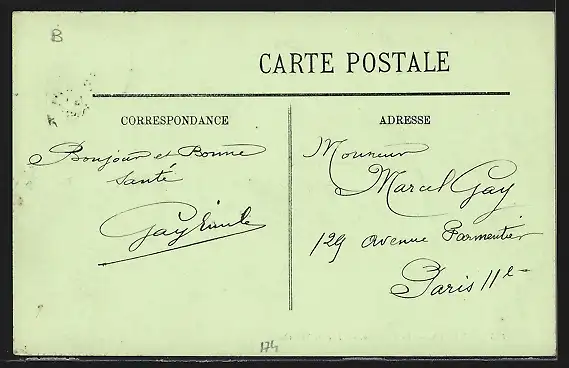 B
CARTE POSTALE
CORRESPONDANCE
Bonjour et Bonne
Santé
Gay Emile
ADRESSE
Monsieur
Marcel Gay
129 avenue Parmentier
Paris 11e
174